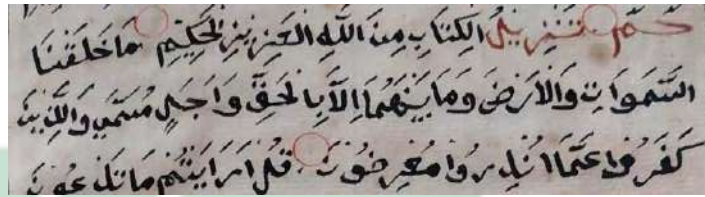 حٰمٓ تَنْزِيلُ الْكِتَابِ مِنَ اللّٰهِ الْعَزِيزِ الْحَكِيمِ مَا خَلَقْنَا
السَّمٰوَاتِ وَالْاَرْضَ وَمَا بَيْنَهُمَا اِلَّا بِالْحَقِّ وَاَجَلٍ مُسَمًّى وَالَّذِينَ
كَفَرُوا عَمَّا اُنْذِرُوا مُعْرِضُونَ قُلْ اَرَاَيْتُمْ مَا تَدْعُونَ